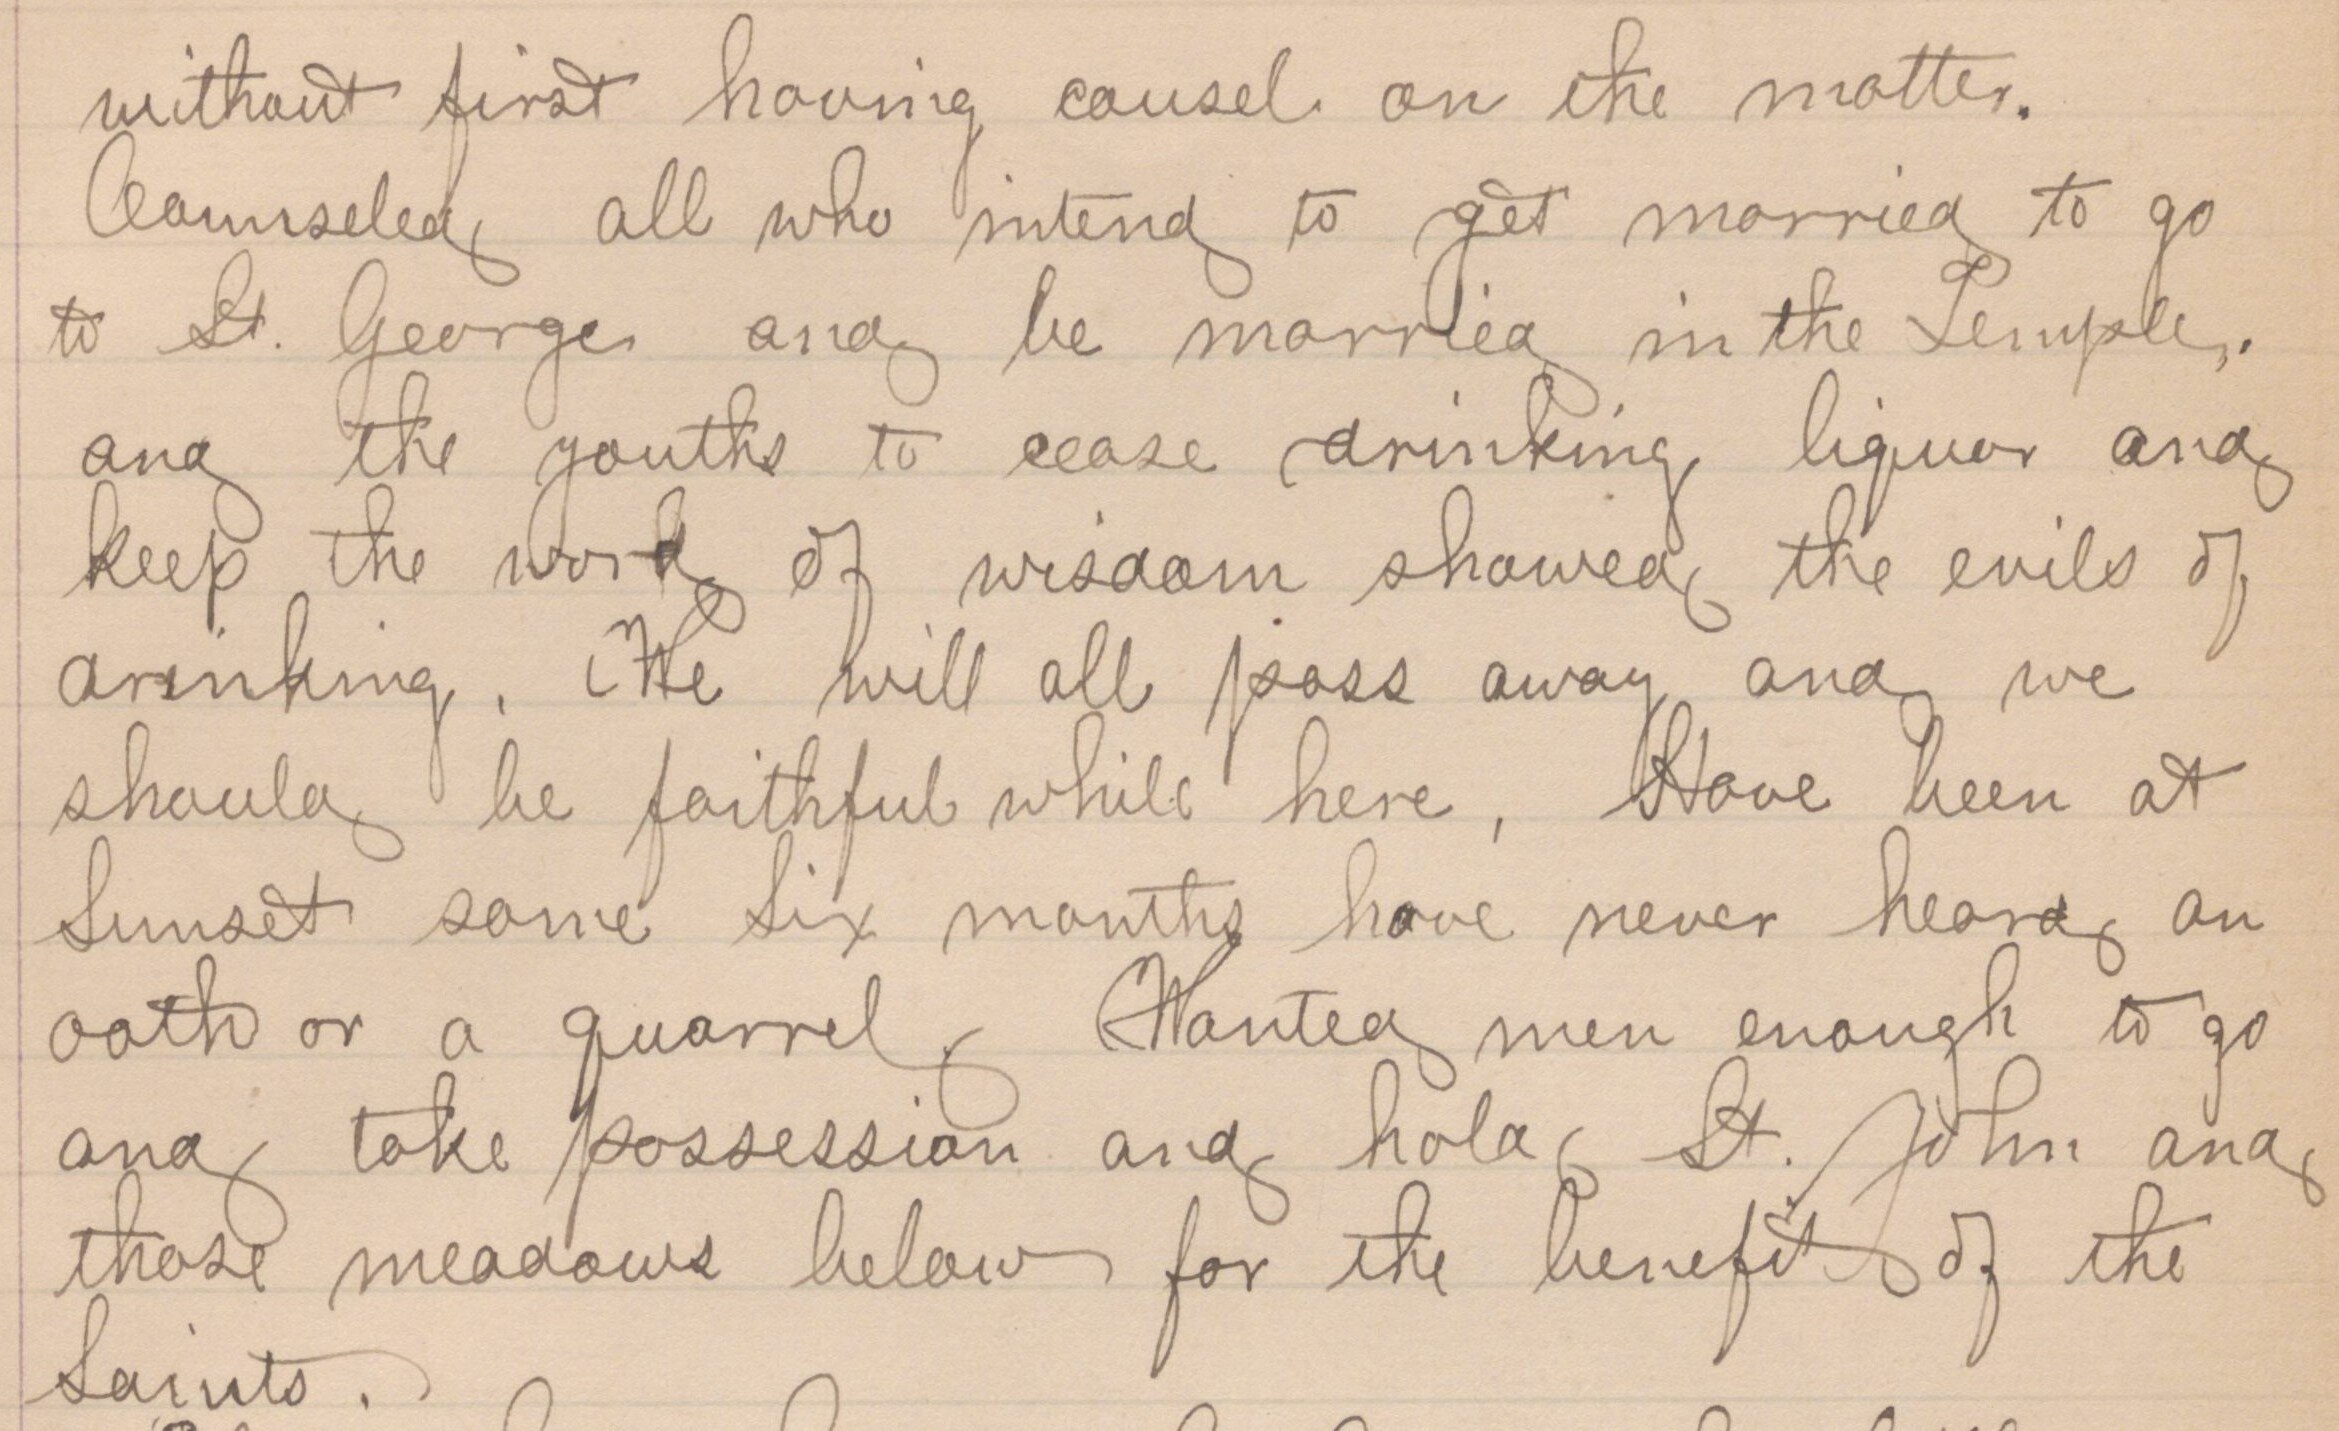 without first having cousel on the matter.
Counseled all who intend to get married to go
to St. George and be married in the Temple.
and the youths to cease drinking liquor and
keep the word of wisdom showed the evils of
drinking. We will all pass away and we
should be faithful while here, Have been at
Sunset some six months have never heard an
oath or a quarrel, Wanted men enough to go
and take possession and hold St. John and
those meadows below for the benefit of the
Saints.